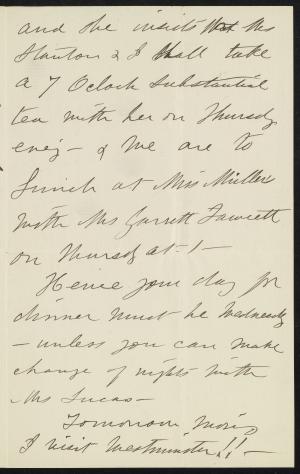 and she insists that Mrs
Stanton & I shall take
a 7 Oclock substantial
tea with her on Thursday
eve'g - & we are to
Lunch at Miss Müller's
with Mrs Garrett Fawcett
on Thursday at 1 -
Hence your day for
dinner must be Wednesday
- unless you can make
change of nights with
Mrs Lucas -
Tomorrow morn'g
I visit Westminster!! -